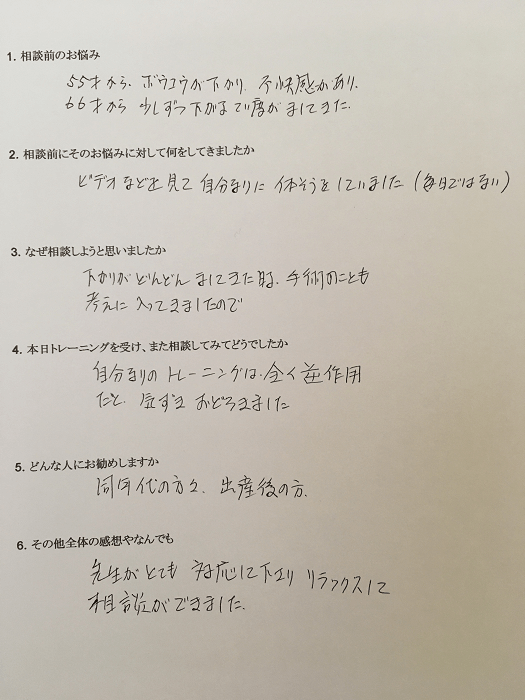 1. 相談前のお悩み
55才から、ボウコウが下がり、不快感があり、
66才から 少しずつ下がるまで度がましてきた。
2. 相談前にそのお悩みに対して何をしてきましたか
ビデオなどを見て自分なりに 体そうをしていました（毎日ではない）
3. なぜ相談しようと思いましたか
下がりがどんどん ましてきた時、手術のことも
考えに入ってきましたので
4. 本日トレーニングを受け、また相談してみてどうでしたか
自分なりの トレーニングは、全く逆作用
だと、気ずき おどろきました
5. どんな人にお勧めしますか
同年代の方々、出産後の方、
6. その他全体の感想やなんでも
先生がとても 対応して下さり リラックスして
相談ができました。